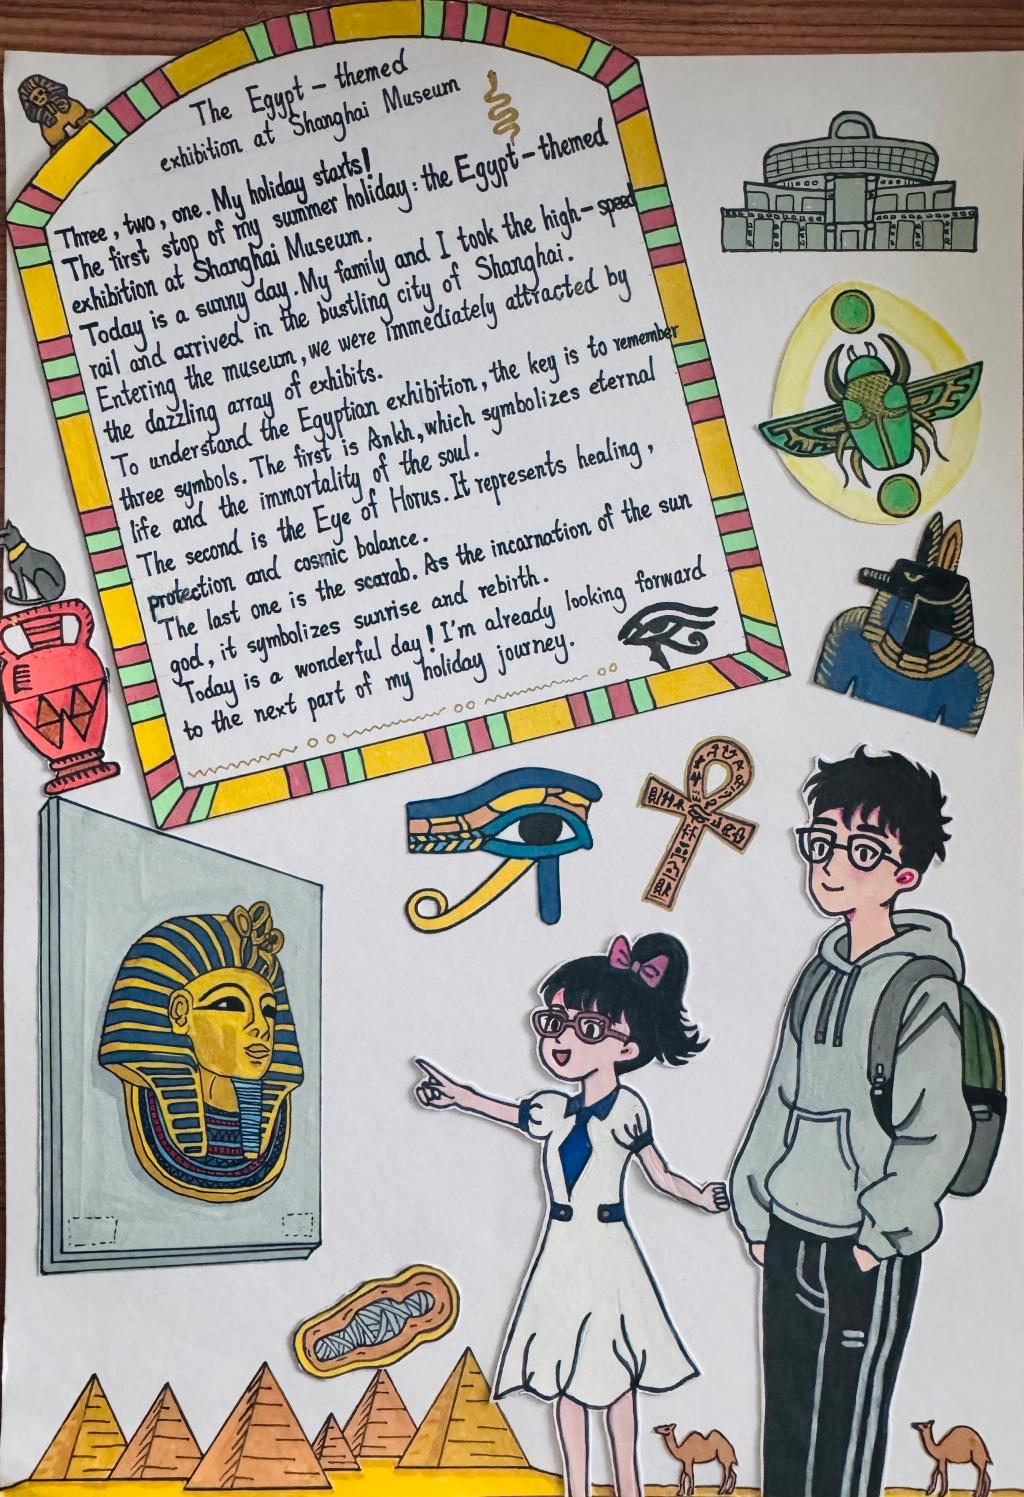 The Egypt-themed
exhibition at Shanghai Museum
Three, two, one. My holiday starts!
The first stop of my summer holiday: the Egypt-themed
exhibition at Shanghai Museum.
Today is a sunny day. My family and I took the high-speed
rail and arrived in the bustling city of Shanghai.
Entering the museum, we were immediately attracted by
the dazzling array of exhibits.
To understand the Egyptian exhibition, the key is to remember
three symbols. The first is Ankh, which symbolizes eternal
life and the immortality of the soul.
The second is the Eye of Horus. It represents healing,
protection and cosmic balance.
The last one is the scarab. As the incarnation of the sun
god, it symbolizes sunrise and rebirth.
Today is a wonderful day! I'm already looking forward
to the next part of my holiday journey.